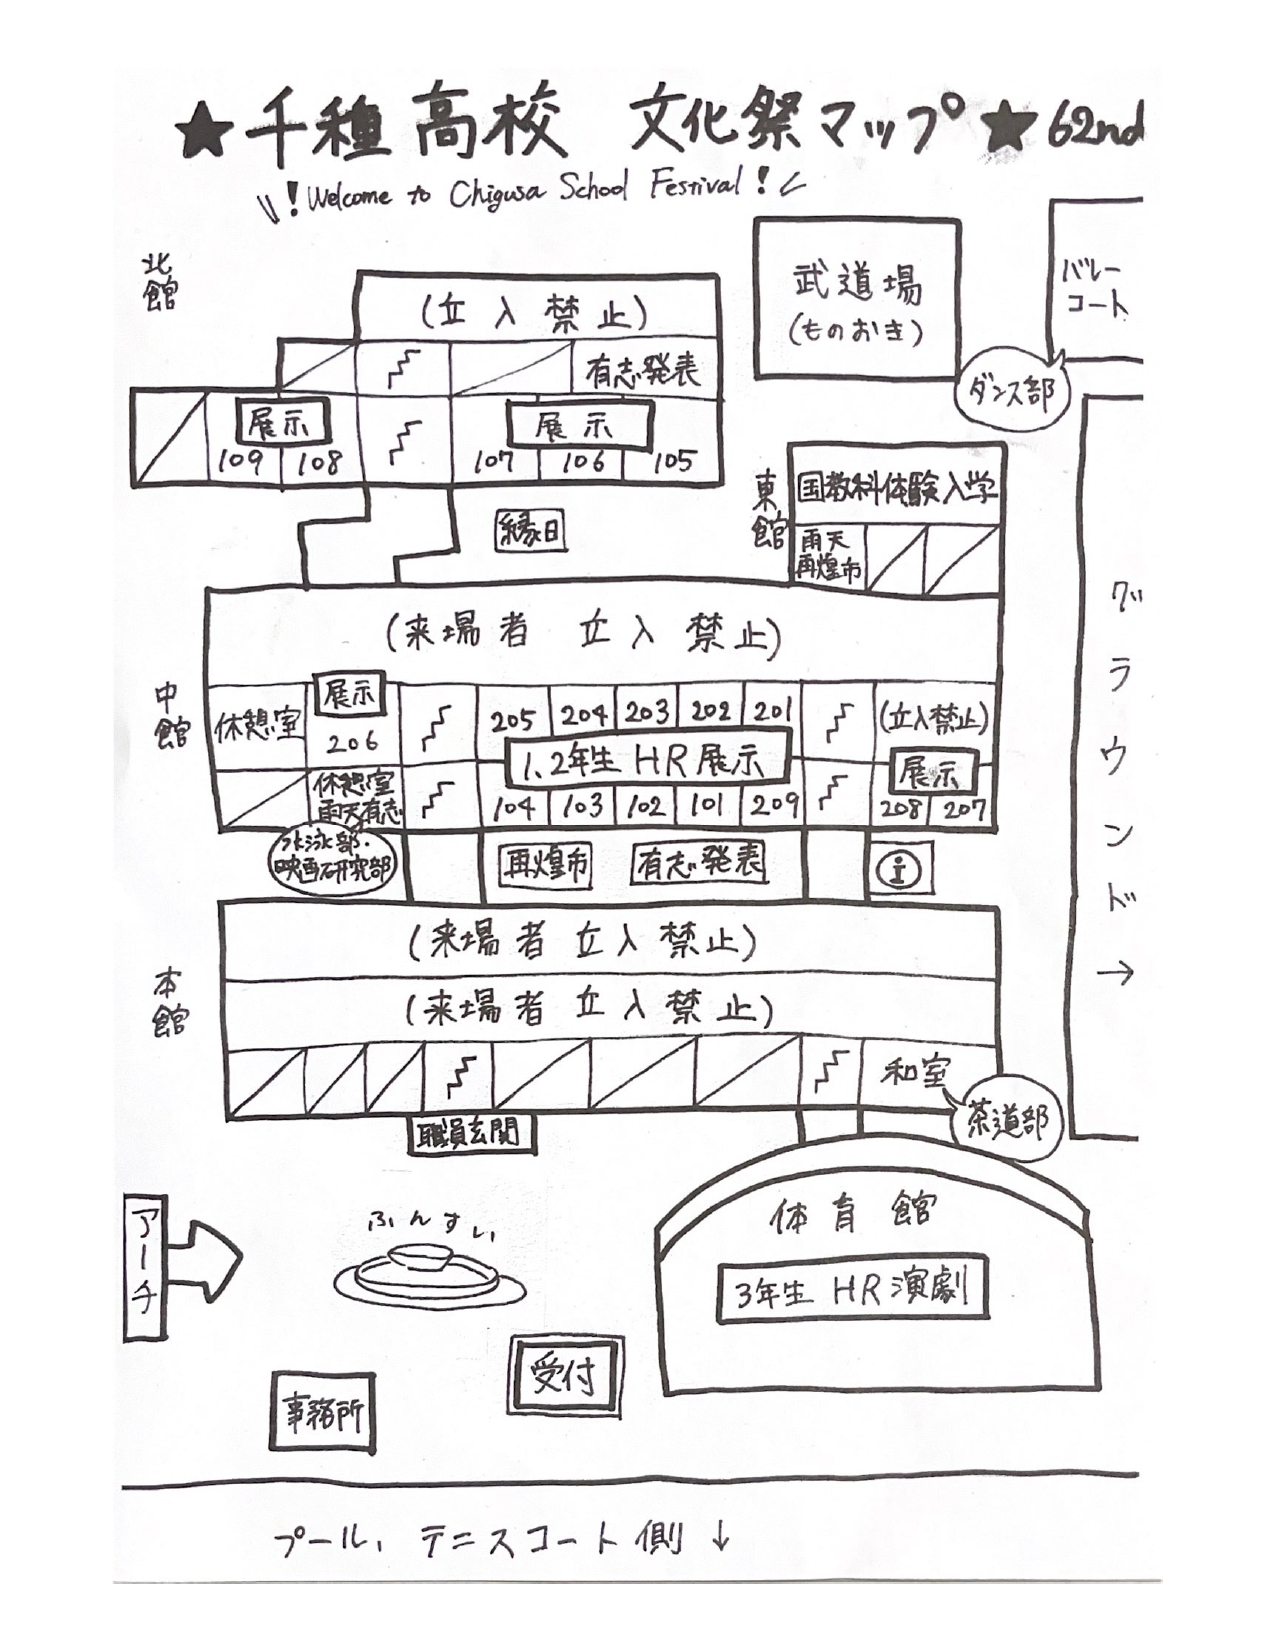 ★千種高校 文化祭マップ★62nd
!Welcome to Chigusa School Festival!
北館
(立入禁止)
有志発表
展示
109 108
展示
107 106 105
武道場
(ものおき)
バレーコート
ダンス部
縁日
東館
国教科体験入学
雨天
再煌市
グラウンド→
中館
(来場者 立入禁止)
休憩室
展示
206
205 204 203 202 201
(立入禁止)
1、2年生 HR展示
休憩室
雨天有志
104 103 102 101 209
展示
208 207
水泳部・
映画研究部
再煌市
有志発表
i
本館
(来場者 立入禁止)
(来場者 立入禁止)
和室
茶道部
職員玄関
アーチ
ふんすい
体育館
3年生 HR演劇
受付
事務所
プール、テニスコート側↓